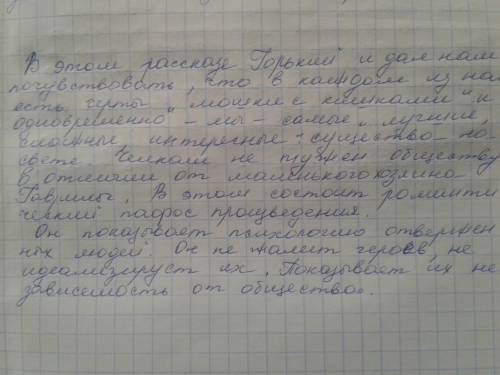 В этом рассказе Горький и дал нам
почувствовать, что в каждом из нас
есть черты „мошки с кишками" и
одновременно – мы – самые „лучшие,
сложные, интересные" существо на
свете. Челкаш не нужен обществу
в отличии от маленького хозяина
Гаврилы. В этом состоит роминти
ческий пафос произведения.
Он показывает психологию отвержен
ных людей. Он не жалеет героев, не
идеализируст их. Показывает их не
зависимость от общества.